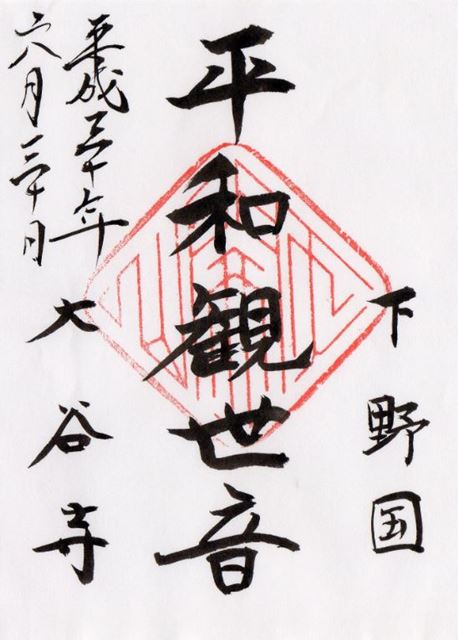 下野国
平和観世音
大谷寺
平成三十年
六月三十日